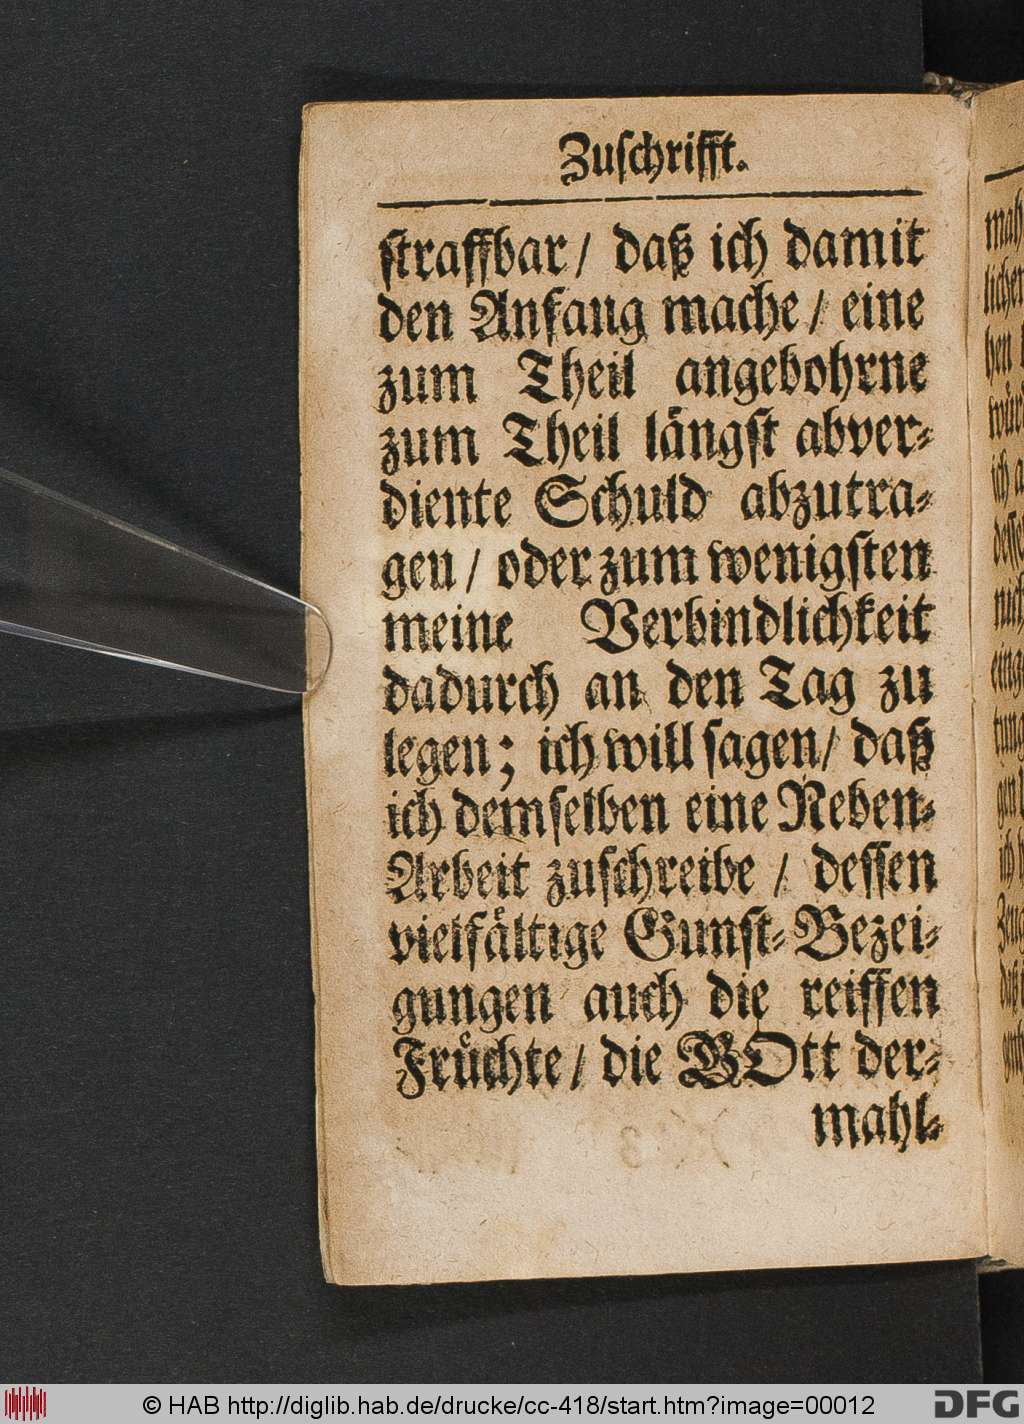 Zuſchrifft.
ſtraffbar / daß ich damit
den Anfang mache / eine
zum Theil angebohrne
zum Theil längſt abver-
diente Schuld abzutra-
gen / oder zum wenigſten
meine Verbindlichkeit
dadurch an den Tag zu
legen; ich will ſagen / daß
ich demſelben eine Neben-
Arbeit zuſchreibe / deſſen
vielfältige Gunſt-Bezei-
gungen auch die reiffen
Früchte / die GOtt der-
mahl-
mah
© HAB http://diglib.hab.de/drucke/cc-418/start.htm?image=00012
DFG